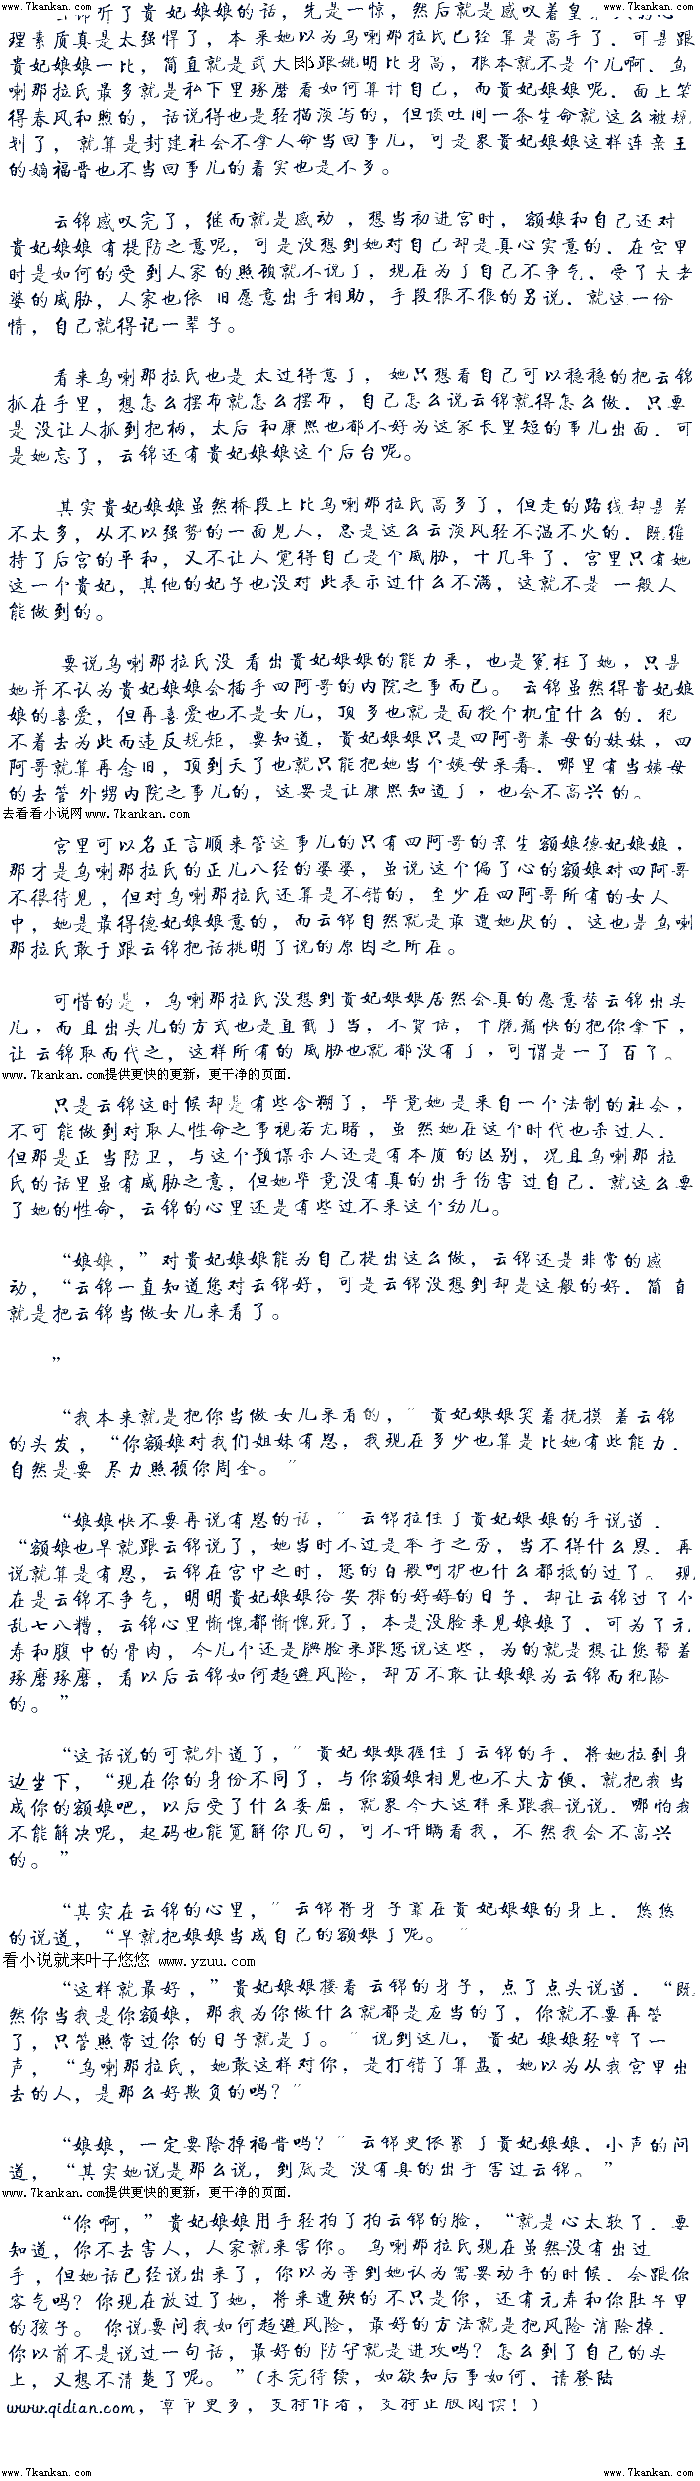 www.7kankan.com www.7kankan.com
听了贵妃娘娘的话，先是一惊，然后就是感叹着皇
理素质真是太强悍了，本来她以为乌喇那拉氏已经算是高手了．可是跟
贵妃娘娘一比，简直就是武大郎跟姚明比身高，根本就不是个儿啊．乌
喇那拉氏最多就是私下里琢磨着如何算计自己，而贵妃娘娘呢．面上笑
得春风和煦的，话说得也是轻描淡写的，但谈吐间一条生命就这么被规
划了，就算是封建社会不拿人命当回事儿，可是象贵妃娘娘这样连亲王
的嫡福晋也不当回事儿的着实也是不多。
云锦感叹完了，继而就是感动，想当初进宫时，额娘和自己还对
贵妃娘娘有提防之意呢，可是没想到她对自己却是真心实意的．在宫里
时是如何的受到人家的照顾就不说了，现在为了自己不争气．受了大老
婆的威胁，人家也依旧愿意出手相助，手段狠不狠的另说．就这一份
情，自己就得记一辈子。
看来乌喇那拉氏也是太过得意了，她只想着自己可以稳稳的把云锦
抓在手里，想怎么摆布就怎么摆布，自己怎么说云锦就得怎么做．只要
是没让人抓到把柄，太后和康熙也都不好为这家长里短的事儿出面．可
是她忘了，云锦还有贵妃娘娘这个后台呢。
其实贵妃娘娘虽然桥段上比乌喇那拉氏高多了，但走的路线却是差
不太多，从不以强势的一面见人，总是这么云淡风轻不温不火的．既维
持了后宫的平和，又不让人觉得自己是个威胁，十几年了．宫里只有她
这一个贵妃，其他的妃子也没对此表示过什么不满，这就不是一般人
能做到的。
要说乌喇那拉氏没看出贵妃娘娘的能力来，也是冤枉了她，只是
她并不认为贵妃娘娘会插手四阿哥的内院之事而已。云锦虽然得贵妃娘
娘的喜爱，但再喜爱也不是女儿，顶多也就是面授个机宜什么的．犯
不着去为此而违反规矩，要知道，贵妃娘娘只是四阿哥养母的妹妹，四
阿哥就算再念旧，顶到天了也就只能把她当个姨母来看．哪里有当姨母
的去管外甥内院之事儿的，这要是让康熙知道了，也会不高兴的。
去看看小说网www.7kankan.com
宫里可以名正言顺来管这事儿的只有四阿哥的亲生额娘德妃娘娘，
那才是乌喇那拉氏的正儿八经的婆婆，虽说这个偏了心的额娘对四阿哥
不很待见，但对乌喇那拉氏还算是不错的，至少在四阿哥所有的女人
中，她是最得德妃娘娘意的，而云锦自然就是最遭她厌的．这也是乌喇
那拉氏敢于跟云锦把话挑明了说的原因之所在。
可惜的是，乌喇那拉氏没想到贵妃娘娘居然会真的愿意替云锦出头
儿，而且出头儿的方式也是直截了当，不费话，干脆痛快的把你拿下，
让云锦取而代之，这样所有的威胁也就都没有了，可谓是一了百了。
www.7kankan.com提供更快的更新，更干净的页面．
只是云锦这时候却是有些含糊了，毕竟她是来自一个法制的社会，
不可能做到对取人性命之事视若无睹，虽然她在这个时代也杀过人．
但那是正当防卫，与这个预谋杀人还是有本质的区别，况且乌喇那拉
氏的话里虽有威胁之意，但她毕竟没有真的出手伤害过自己．就这么要
了她的性命，云锦的心里还是有些过不来这个劲儿。
“娘娘，”对贵妃娘娘能为自己提出这么做，云锦还是非常的感
动，“云锦一直知道您对云锦好，可是云锦没想到却是这般的好．简直
就是把云锦当做女儿来看了。
”
“我本来就是把你当做女儿来看的，”贵妃娘娘笑着抚摸着云锦
的头发，“你额娘对我们姐妹有恩，我现在多少也算是比她有些能力．
自然是要尽力照顾你周全。”
“娘娘快不要再说有恩的话，”云锦拉住了贵妃娘娘的手说道．
“额娘也早就跟云锦说了，她当时不过是举手之劳，当不得什么恩．再
说就算是有恩，云锦在宫中之时，您的百般呵护也什么都抵的过了。现
在是云锦不争气，明明贵妃娘娘给安排的好好的日子．却让云锦过了个
乱七八糟，云锦心里惭愧都惭愧死了，本是没脸来见娘娘了．可为了元
寿和腹中的骨肉，今儿个还是腆脸来跟您说这些，为的就是想让您帮着
琢磨琢磨，看以后云锦如何趋避风险，却万不敢让娘娘为云锦而犯险
的。”
“这话说的可就外道了，”贵妃娘娘握住了云锦的手．将她拉到身
边坐下，“现在你的身份不同了，与你额娘相见也不大方便．就把我当
成你的额娘吧，以后受了什么委屈，就象今天这样来跟我说说．哪怕我
不能解决呢，起码也能宽解你几句，可不许瞒着我，不然我会不高兴
的。”
“其实在云锦的心里，”云锦将身子靠在贵妃娘娘的身上．悠悠
的说道，“早就把娘娘当成自己的额娘了呢。”
看小说就来叶子悠悠 www.yzuu.com
“这样就最好，”贵妃娘娘搂着云锦的身子，点了点头说道．“既
然你当我是你额娘，那我为你做什么就都是应当的了，你就不要再管
了，只管照常过你的日子就是了。”说到这儿，贵妃娘娘轻哼了一
声，“乌喇那拉氏，她敢这样对你，是打错了算盘，她以为从我宫里出
去的人，是那么好欺负的吗？”
“娘娘，一定要除掉福晋吗？”云锦更依紧了贵妃娘娘．小声的问
道，“其实她说是那么说，到底是没有真的出手害过云锦。”
www.7kankan.com提供更快的更新，更干净的页面．
“你啊，”贵妃娘娘用手轻拍了拍云锦的脸，“就是心太软了．要
知道，你不去害人，人家就来害你。乌喇那拉氏现在虽然没有出过
手，但她话已经说出来了，你以为等到她认为需要动手的时候．会跟你
客气吗？你现在放过了她，将来遭殃的不只是你，还有元寿和你肚子里
的孩子。你说要问我如何趋避风险，最好的方法就是把风险消除掉．
你以前不是说过一句话，最好的防守就是进攻吗？怎么到了自己的头
上，又想不清楚了呢。”(未完待续，如欲知后事如何．请登陆
www.qidian.com，章节更多，支持作者，支持正版阅读！)
www.7kankan.com www.7kankan.com